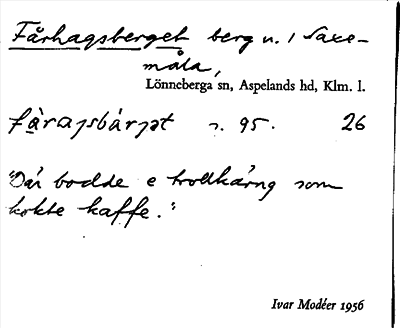 Fårhagsberget berg n. / Saxe-
måla,
Lönneberga sn, Aspelands hd, Klm. l.
n. 95. 26
"Där bodde e trollkärng som
kokte kaffe."
Ivar Modéer 1956